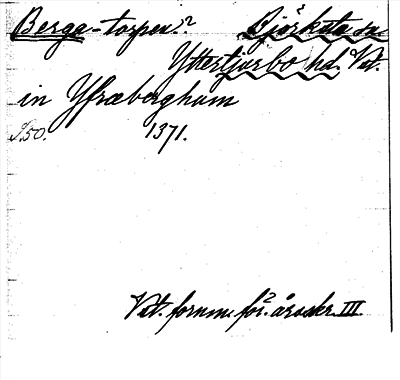 Berga-torpen? Björksta sn.
Yttertjurbo hd. Vst.
in Yfræberghum
S. 50. 1371.
Vst. fornm. för:s årsskr. III